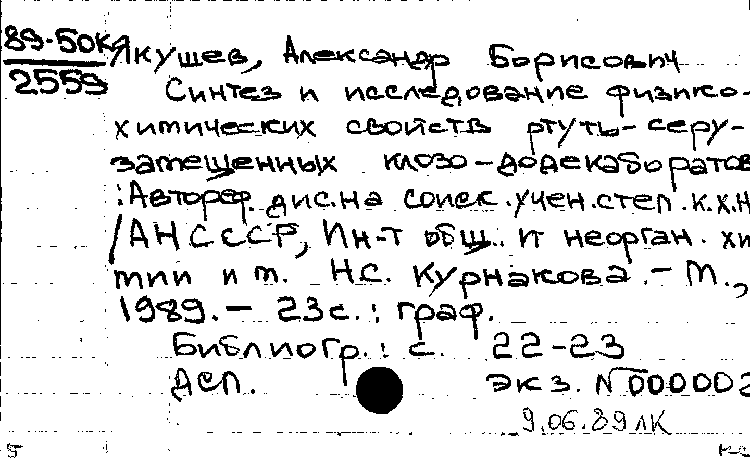 89-50к Якушев, Александр Борисович
2559
Синтез и исследование физико-
химических свойств ртуть-серу-
замещенных клозо-додекаборатов
: Автореф. дис. на соиск. учен. степ. к.х.н
/АН СССР, Ин-т общ. и неорган. хи
мии им. Н.С. Курнакова. - М.,
1989. - 23 с. : граф.
Библиогр.: с. 22-23
ДСП. экз. N 000002
9.06.89 лк